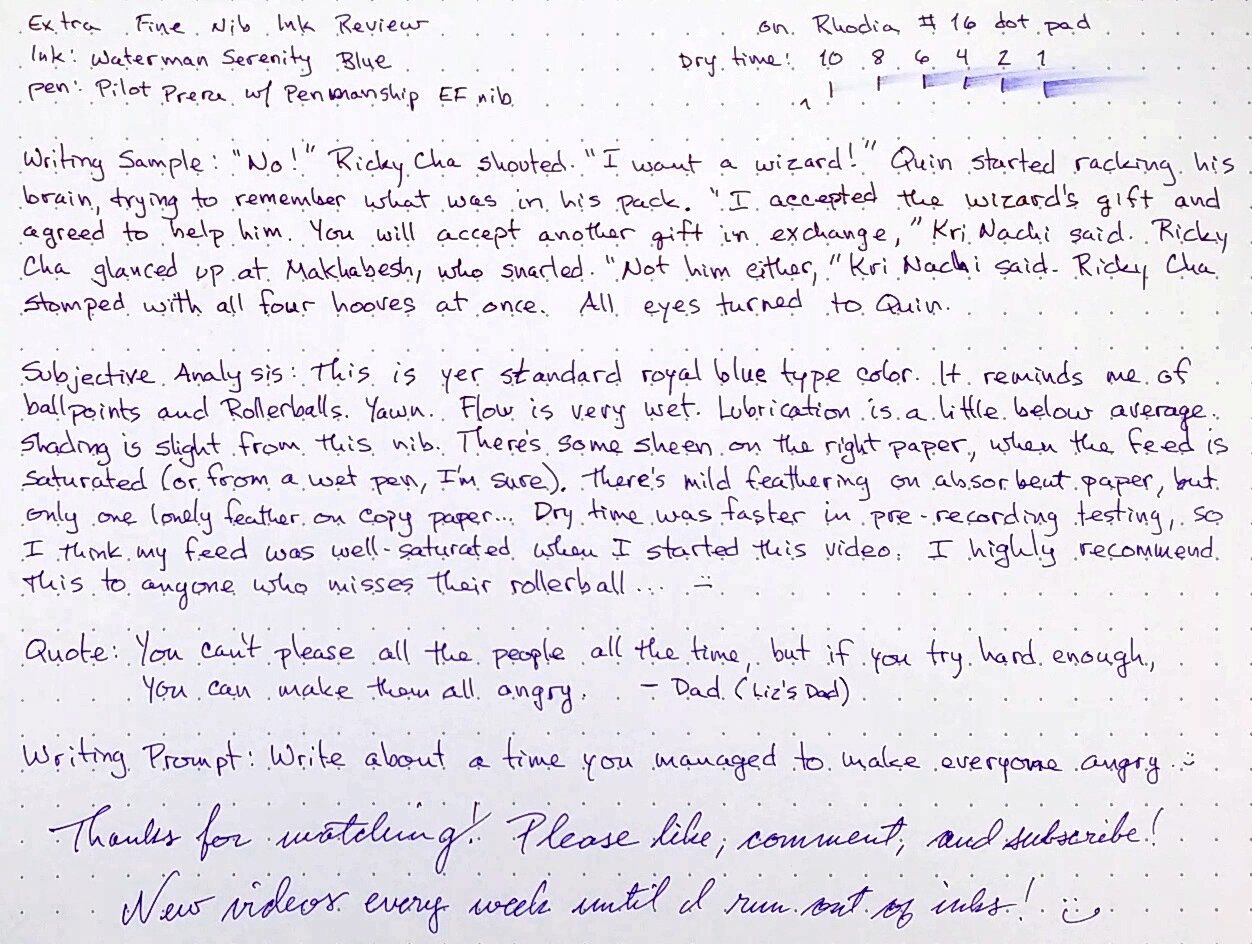 Extra Fine Nib Ink Review on Rhodia # 16 dot pad
Ink: Waterman Serenity Blue Dry time: 10 8 6 4 2 1
pen: Pilot Prera w/ Penmanship EF nib
Writing Sample: "No!" Ricky Cha shouted. "I want a wizard!" Quin started racking his
brain, trying to remember what was in his pack. "I accepted the wizard's gift and
agreed to help him. You will accept another gift in exchange," Kri Nachi said. Ricky
Cha glanced up at Makhabesh, who snarled. "Not him either," Kri Nachi said. Ricky Cha
stomped with all four hooves at once. All eyes turned to Quin.
Subjective Analysis: This is yer standard royal blue type color. It reminds me of
ballpoints and Rollerballs. Yawn. Flow is very wet. Lubrication is a little below average.
Shading is slight from this nib. There's some sheen on the right paper, when the feed is
saturated (or from a wet pen, I'm sure). There's mild feathering on absorbent paper, but
only one lonely feather on copy paper... Dry time was faster in pre-recording testing, so
I think my feed was well-saturated when I started this video. I highly recommend
this to anyone who misses their rollerball... :)
Quote: You can't please all the people all the time, but if you try hard enough,
you can make them all angry. - Dad (Liz's Dad)
Writing Prompt: Write about a time you managed to make everyone angry :)
Thanks for watching! Please like, comment, and subscribe!
New videos every week until I run out of inks! :)